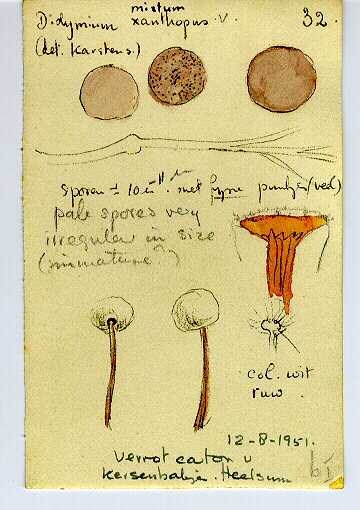 mixtum
Didymium xanthopus. V. 32.
(det. Karstens.)
sporen ± 10 µ. met fijne puntjes (ved)
pale spores very
irregular in size
(immature?)
col. wit
ruw.
12-8-1951.
Verrot eaton v
Kersenbaltjen. Heelsum